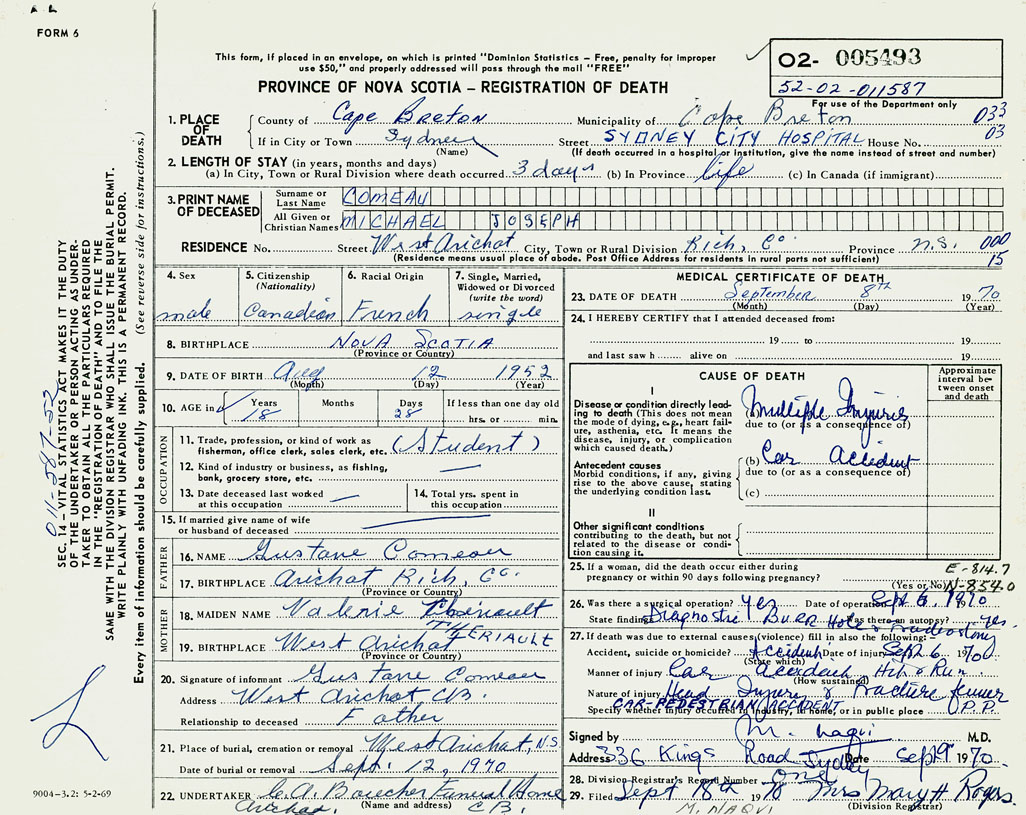 FORM 6
This form, if placed in an envelope, on which is printed "Dominion Statistics – Free, penalty for improper
use $50," and properly addressed will pass through the mail "FREE"
02- 005493
52-02-011587
For use of the Department only
PROVINCE OF NOVA SCOTIA – REGISTRATION OF DEATH
1. PLACE OF DEATH
County of Cape Breton Municipality of Cape Breton 033
If in City or Town Sydney (Name) Street SYDNEY CITY HOSPITAL House No. 03
(If death occurred in a hospital or institution, give the name instead of street and number)
2. LENGTH OF STAY (in years, months and days)
(a) In City, Town or Rural Division where death occurred 3 days (b) In Province life (c) In Canada (if immigrant)
3. PRINT NAME OF DECEASED
Surname or Last Name COMEAU
All Given or Christian Names MICHAEL JOSEPH
RESIDENCE No. Street West Arichat City, Town or Rural Division Rich, Co. Province N.S. 000
(Residence means usual place of abode. Post Office Address for residents in rural parts not sufficient) 15
4. Sex male
5. Citizenship (Nationality) Canadian
6. Racial Origin French
7. Single, Married, Widowed or Divorced (write the word) single
8. BIRTHPLACE NOVA SCOTIA
(Province or Country)
9. DATE OF BIRTH Aug 12 1952
(Month) (Day) (Year)
10. AGE in Years 18 Months Days 28 If less than one day old hrs. or min.
OCCUPATION
11. Trade, profession, or kind of work as fisherman, office clerk, sales clerk, etc. (Student)
12. Kind of industry or business, as fishing, bank, grocery store, etc. —
13. Date deceased last worked at this occupation —
14. Total yrs. spent in this occupation
15. If married give name of wife or husband of deceased
FATHER
16. NAME Gustave Comeau
17. BIRTHPLACE Arichat Rich, Co.
(Province or Country)
MOTHER
18. MAIDEN NAME Valerie
THERIAULT
19. BIRTHPLACE West Arichat
(Province or Country)
20. Signature of informant Gustave Comeau
Address West Arichat C.B.
Relationship to deceased Father
21. Place of burial, cremation or removal West Arichat, N.S.
Date of burial or removal Sept. 12, 1970
22. UNDERTAKER C.A. Boucher Funeral Home
(Name and address)
Arichat, C.B.
MEDICAL CERTIFICATE OF DEATH
23. DATE OF DEATH September 8th 1970
(Month) (Day) (Year)
24. I HEREBY CERTIFY that I attended deceased from:
19 to 19
and last saw h alive on 19
CAUSE OF DEATH
Approximate interval between onset and death
I
Disease or condition directly leading to death (This does not mean the mode of dying, e.g., heart failure, asthenia, etc. It means the disease, injury, or complication which caused death.)
Multiple Injuries
due to (or as a consequence of)
Antecedent causes
Morbid conditions, if any, giving rise to the above cause, stating the underlying condition last.
(b) Car Accident
due to (or as a consequence of)
(c)
II
Other significant conditions contributing to the death, but not related to the disease or condition causing it.
25. If a woman, did the death occur either during pregnancy or within 90 days following pregnancy? (Yes or No)
E-814.7
N-854.0
26. Was there a surgical operation? yes Date of operation Sept 6, 1970
State findings Diagnostic Burr Hole & Was there an autopsy? yes.
27. If death was due to external causes (violence) fill in also the following:–
Accident, suicide or homicide? Accident Date of injury Sept 6 1970
(State which)
Manner of injury Car Accident Hit & Run
(How sustained)
Nature of injury Head Injury & Fracture femur
CAR-PEDESTRIAN ACCIDENT
Specify whether injury occurred in industry, in home, or in public place P.P.
Signed by M. Naqvi M.D.
Address 336 Kings Road Sydney Date Sept 9 1970
28. Division Registrar's Record Number one
29. Filed Sept 18th 1970 Mrs Mary H Rogers
(Division Registrar)
M. NAQVI
011-587-52
SEC. 14 – VITAL STATISTICS ACT MAKES IT THE DUTY
OF THE UNDERTAKER OR PERSON ACTING AS UNDERTAKER TO OBTAIN ALL THE PARTICULARS REQUIRED
IN THE "REGISTRATION OF DEATH" AND TO FILE THE
SAME WITH THE DIVISION REGISTRAR WHO SHALL ISSUE THE BURIAL PERMIT.
WRITE PLAINLY WITH UNFADING INK. THIS IS A PERMANENT RECORD.
Every item of information should be carefully supplied. (See reverse side for instructions.)
9004-3.2: 5-2-69